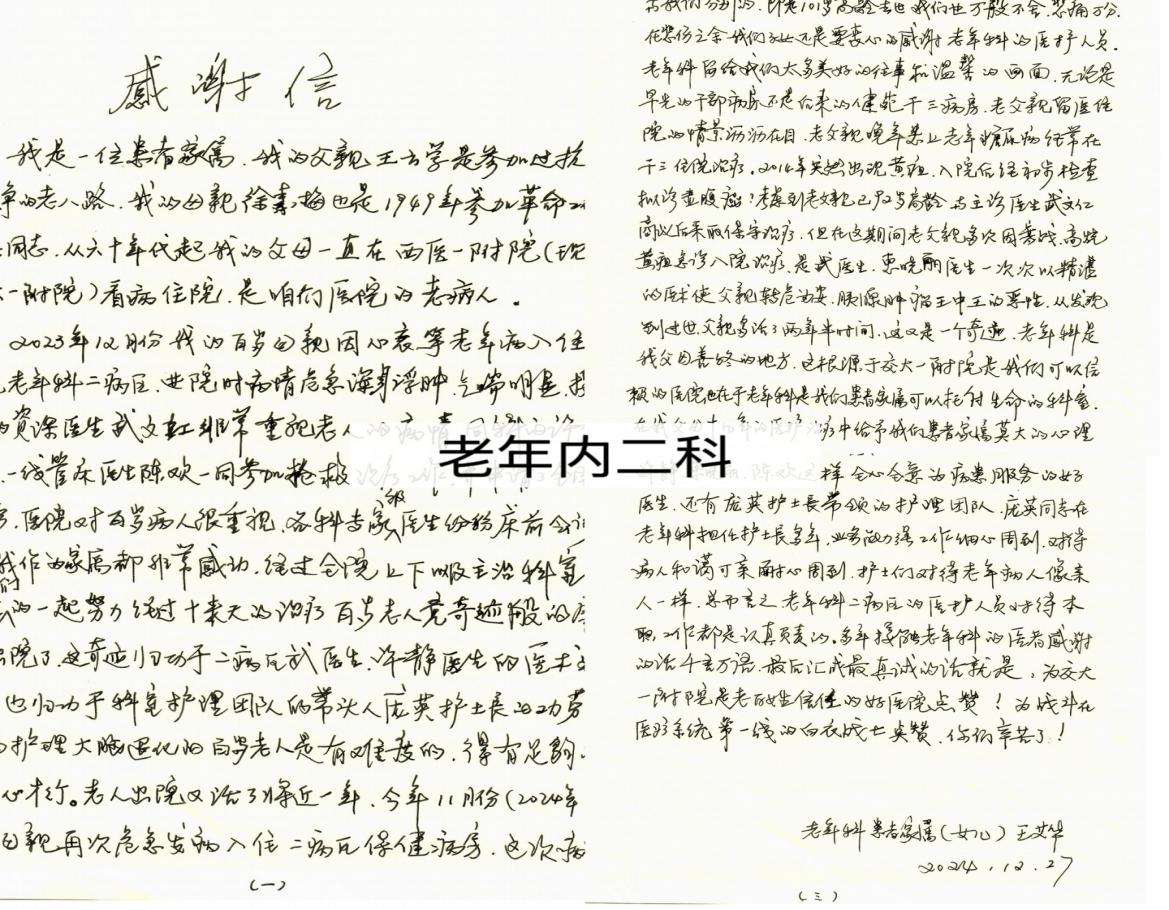 感谢信
我是一位患者家属，我的父亲王云学是参加过抗
争的老八路，我的母亲徐素梅也是1949年参加革命工
同志，从六十年代起我的父母一直在西医一附院（现
一附院）看病住院，是咱们医院的老病人。
2023年12月份我的百岁母亲因心衰等老年病入住
老年科二病区，出院时病情危急浑身浮肿，气喘明显，
资深医生武文红非常重视老人的病情，同科内
一线管床医生陈欢一同参加抢救治疗工作，
医院对百岁病人很重视，各科专家级医生纷纷床前会
我们作为家属都非常感动，经过全院上下以及主治科室
的一起努力经过十来天的治疗百岁老人竟奇迹般的
出院了，这奇迹归功于二病区武医生、许静医生的医术
也归功于科室护理团队的带头人庞英护士长的功劳
护理大脑退化的百岁老人是有难度的，得有足够
心才行。老人出院又活了将近一年，今年11月份（2024年
母亲再次危急发病入住二病区保健病房，这次病
（一）
老年内二科
我们分别的，即是101岁高龄去世我们也万般不舍，悲痛万分，
在悲伤之余我们还是要衷心的感谢老年科的医护人员。
老年科留给我们太多美好的往事和温馨的画面，无论是
早先的干部病房还是后来的保健干三病房，老父亲留医住
院的情景历历在目，老父亲晚年患上老年糖尿病经常在
干三住院治疗。2014年突然出现黄疸，入院后经初步检查
拟诊壶腹癌？考虑到老父亲已92岁高龄，与主诊医生武文红
商议后采取保守治疗，但在这期间老父亲多次因寒战、高烧
黄疸急诊入院治疗，是武医生、惠晓丽医生一次次以精湛
的医术使父亲转危为安，胰腺肿瘤王中王的恶性，从发现
到过世父亲多活了两年半时间，这又是一个奇迹，老年科是
我父母善终的地方，这根源于交大一附院是我们可以信
赖的医院也在于老年科是我们患者家属可以托付生命的科室，
在我父母十几年的医疗治疗中给予我们患者家属莫大的心理
陈欢这样全心全意为病患服务的好
医生，还有庞英护士长带领的护理团队，庞英同志在
老年科担任护士长多年，业务能力强工作细心周到，对待
病人和蔼可亲耐心周到，护士们对待老年病人像亲
人一样，总而言之老年科二病区的医护人员对待本
职工作都是认真负责的，多年接触老年科的医者感谢
的话千言万语，最后汇成最真诚的话就是，为交大
一附院是老百姓信任的好医院点赞！为战斗在
医疗系统第一线的白衣战士点赞，你们辛苦了！
老年科患者家属（女儿）王
2024.12.27
（三）